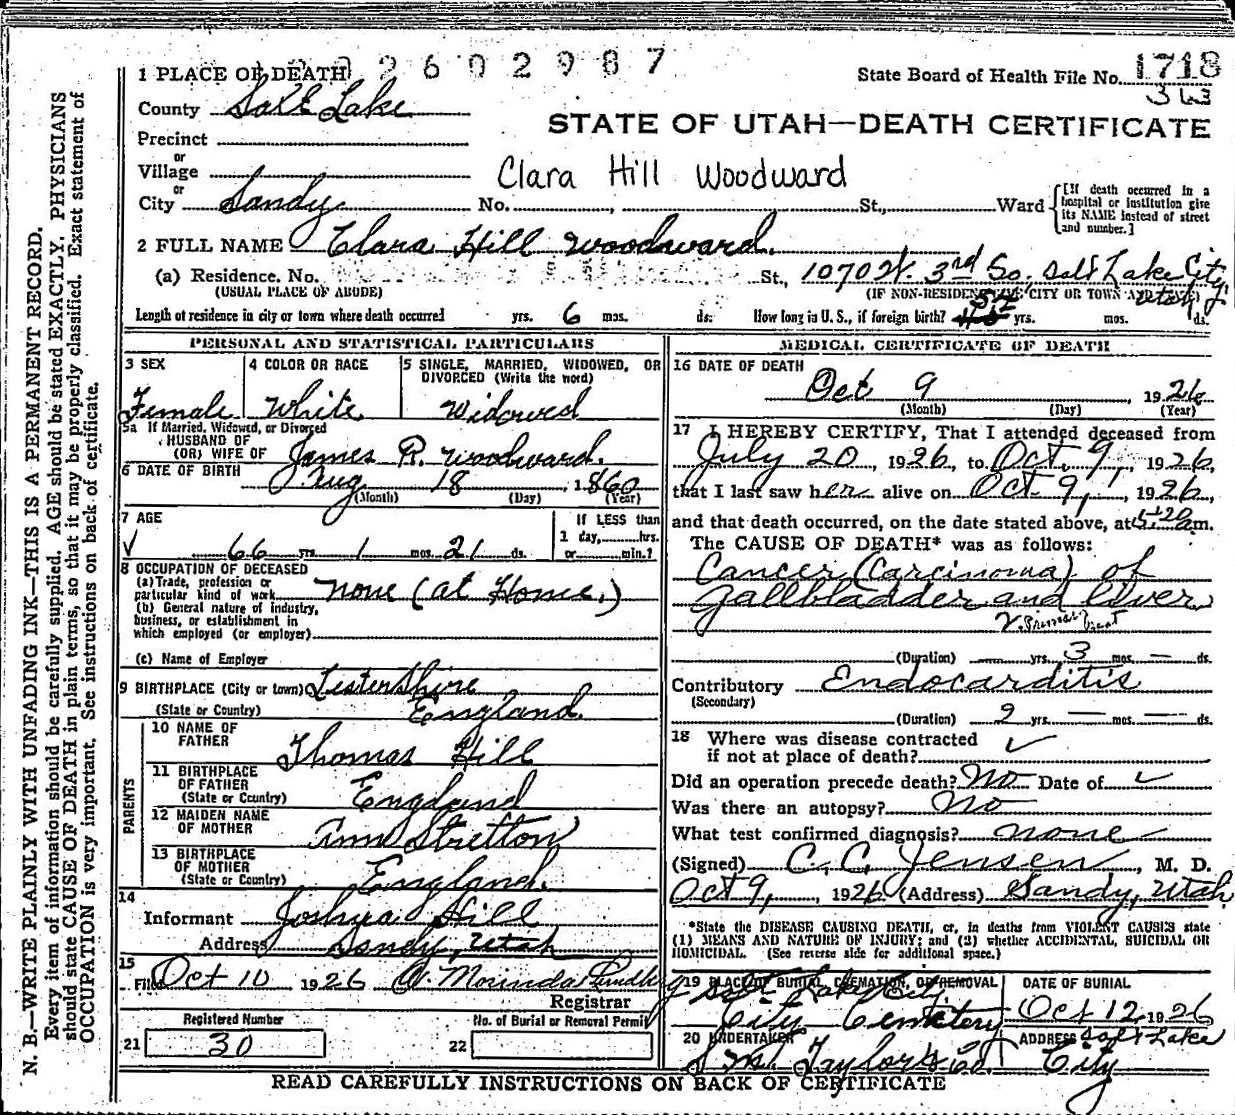 2602987
1 PLACE OF DEATH
State Board of Health File No. 1718
County Salt Lake
STATE OF UTAH—DEATH CERTIFICATE
Precinct
or
Village
Clara Hill Woodward
or
City Sandy No. , St., Ward
[If death occurred in a hospital or institution give its NAME instead of street and number.]
2 FULL NAME Clara Hill Woodward.
(a) Residence. No. St., 1070 W. 3rd So. Salt Lake City Utah
(USUAL PLACE OF ABODE) (IF NON-RESIDENT GIVE CITY OR TOWN AND STATE)
Length of residence in city or town where death occurred yrs. 6 mos. ds. How long in U.S., if foreign birth? yrs. mos. ds.
PERSONAL AND STATISTICAL PARTICULARS
3 SEX 4 COLOR OR RACE 5 SINGLE, MARRIED, WIDOWED, OR
DIVORCED (Write the word)
Female White Widowed
5a If Married, Widowed, or Divorced
HUSBAND OF
(OR) WIFE OF James R. Woodward.
6 DATE OF BIRTH Aug 18, 1860
(Month) (Day) (Year)
7 AGE If LESS than
1 day, hrs.
66 yrs. 1 mos. 21 ds. or min.?
8 OCCUPATION OF DECEASED
(a) Trade, profession or
particular kind of work none (at Home.)
(b) General nature of industry,
business, or establishment in
which employed (or employer)
(c) Name of Employer
9 BIRTHPLACE (City or town) Listershire
(State or Country) England.
PARENTS
10 NAME OF
FATHER Thomas Hill
11 BIRTHPLACE
OF FATHER
(State or Country) England
12 MAIDEN NAME
OF MOTHER Ann Stretton
13 BIRTHPLACE
OF MOTHER
(State or Country) England.
14
Informant Joshua Hill
Address Sandy, Utah
15
Filed Oct 10 1926
Registrar
Registered Number No. of Burial or Removal Permit
21 30 22
MEDICAL CERTIFICATE OF DEATH
16 DATE OF DEATH
Oct 9, 1926
(Month) (Day) (Year)
17 I HEREBY CERTIFY, That I attended deceased from
July 20, 1926, to Oct. 9, 1926,
that I last saw her alive on Oct. 9, 1926,
and that death occurred, on the date stated above, at 5:20 am.
The CAUSE OF DEATH* was as follows:
Cancer (Carcinoma) of
gallbladder and liver
(Duration) yrs. 3 mos. — ds.
Contributory Endocarditis
(Secondary)
(Duration) 2 yrs. — mos. — ds.
18 Where was disease contracted
if not at place of death?
Did an operation precede death? No Date of
Was there an autopsy? No
What test confirmed diagnosis? none
(Signed) C. C. Jensen, M. D.
Oct 9, 1926 (Address) Sandy, Utah
*State the DISEASE CAUSING DEATH, or, in deaths from VIOLENT CAUSES state
(1) MEANS AND NATURE OF INJURY; and (2) whether ACCIDENTAL, SUICIDAL OR
HOMICIDAL. (See reverse side for additional space.)
19 PLACE OF BURIAL, CREMATION, OR REMOVAL DATE OF BURIAL
Salt Lake City
City Cemetery Oct 12, 1926
20 UNDERTAKER ADDRESS Salt Lake
Taylor & Co. City
READ CAREFULLY INSTRUCTIONS ON BACK OF CERTIFICATE
N. B.—WRITE PLAINLY WITH UNFADING INK—THIS IS A PERMANENT RECORD.
Every item of information should be carefully supplied. AGE should be stated EXACTLY. PHYSICIANS
should state CAUSE OF DEATH in plain terms, so that it may be properly classified. Exact statement of
OCCUPATION is very important. See instructions on back of certificate.